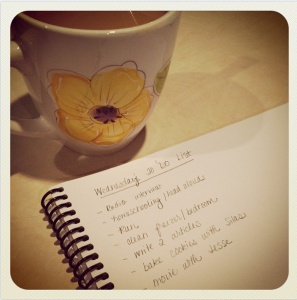 Wednesday To Do List
- Radio interview
- homeschooling / read alouds
- Run
- clean fridge / bedroom
- write 2 articles
- bake cookies with Silas
- movie with Jessa